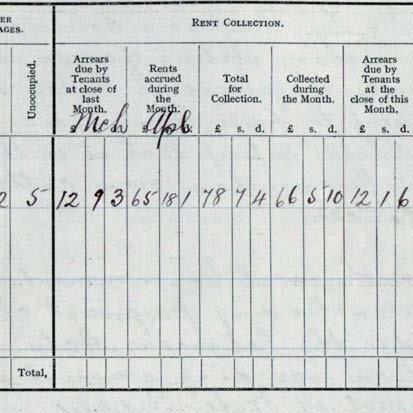 ER
AGES.
RENT COLLECTION.
Unoccupied.
Arrears due by Tenants at close of last Month.
Rents accrued during the Month.
Total for Collection.
Collected during the Month.
Arrears due by Tenants at the close of this Month.
Mch Apl
£ s. d. £ s. d. £ s. d.
2 5 12 9 3 65 18 1 78 7 4 66 5 10 12 1 6
Total,